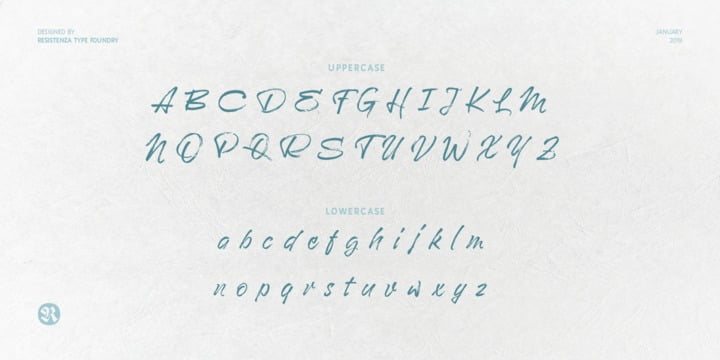 DESIGNED BY
RESISTENZA TYPE FOUNDRY
JANUARY
2019
UPPERCASE
A B C D E F G H I J K L M
N O P Q R S T U V W X Y Z
LOWERCASE
a b c d e f g h i j k l m
n o p q r s t u v w x y z
R